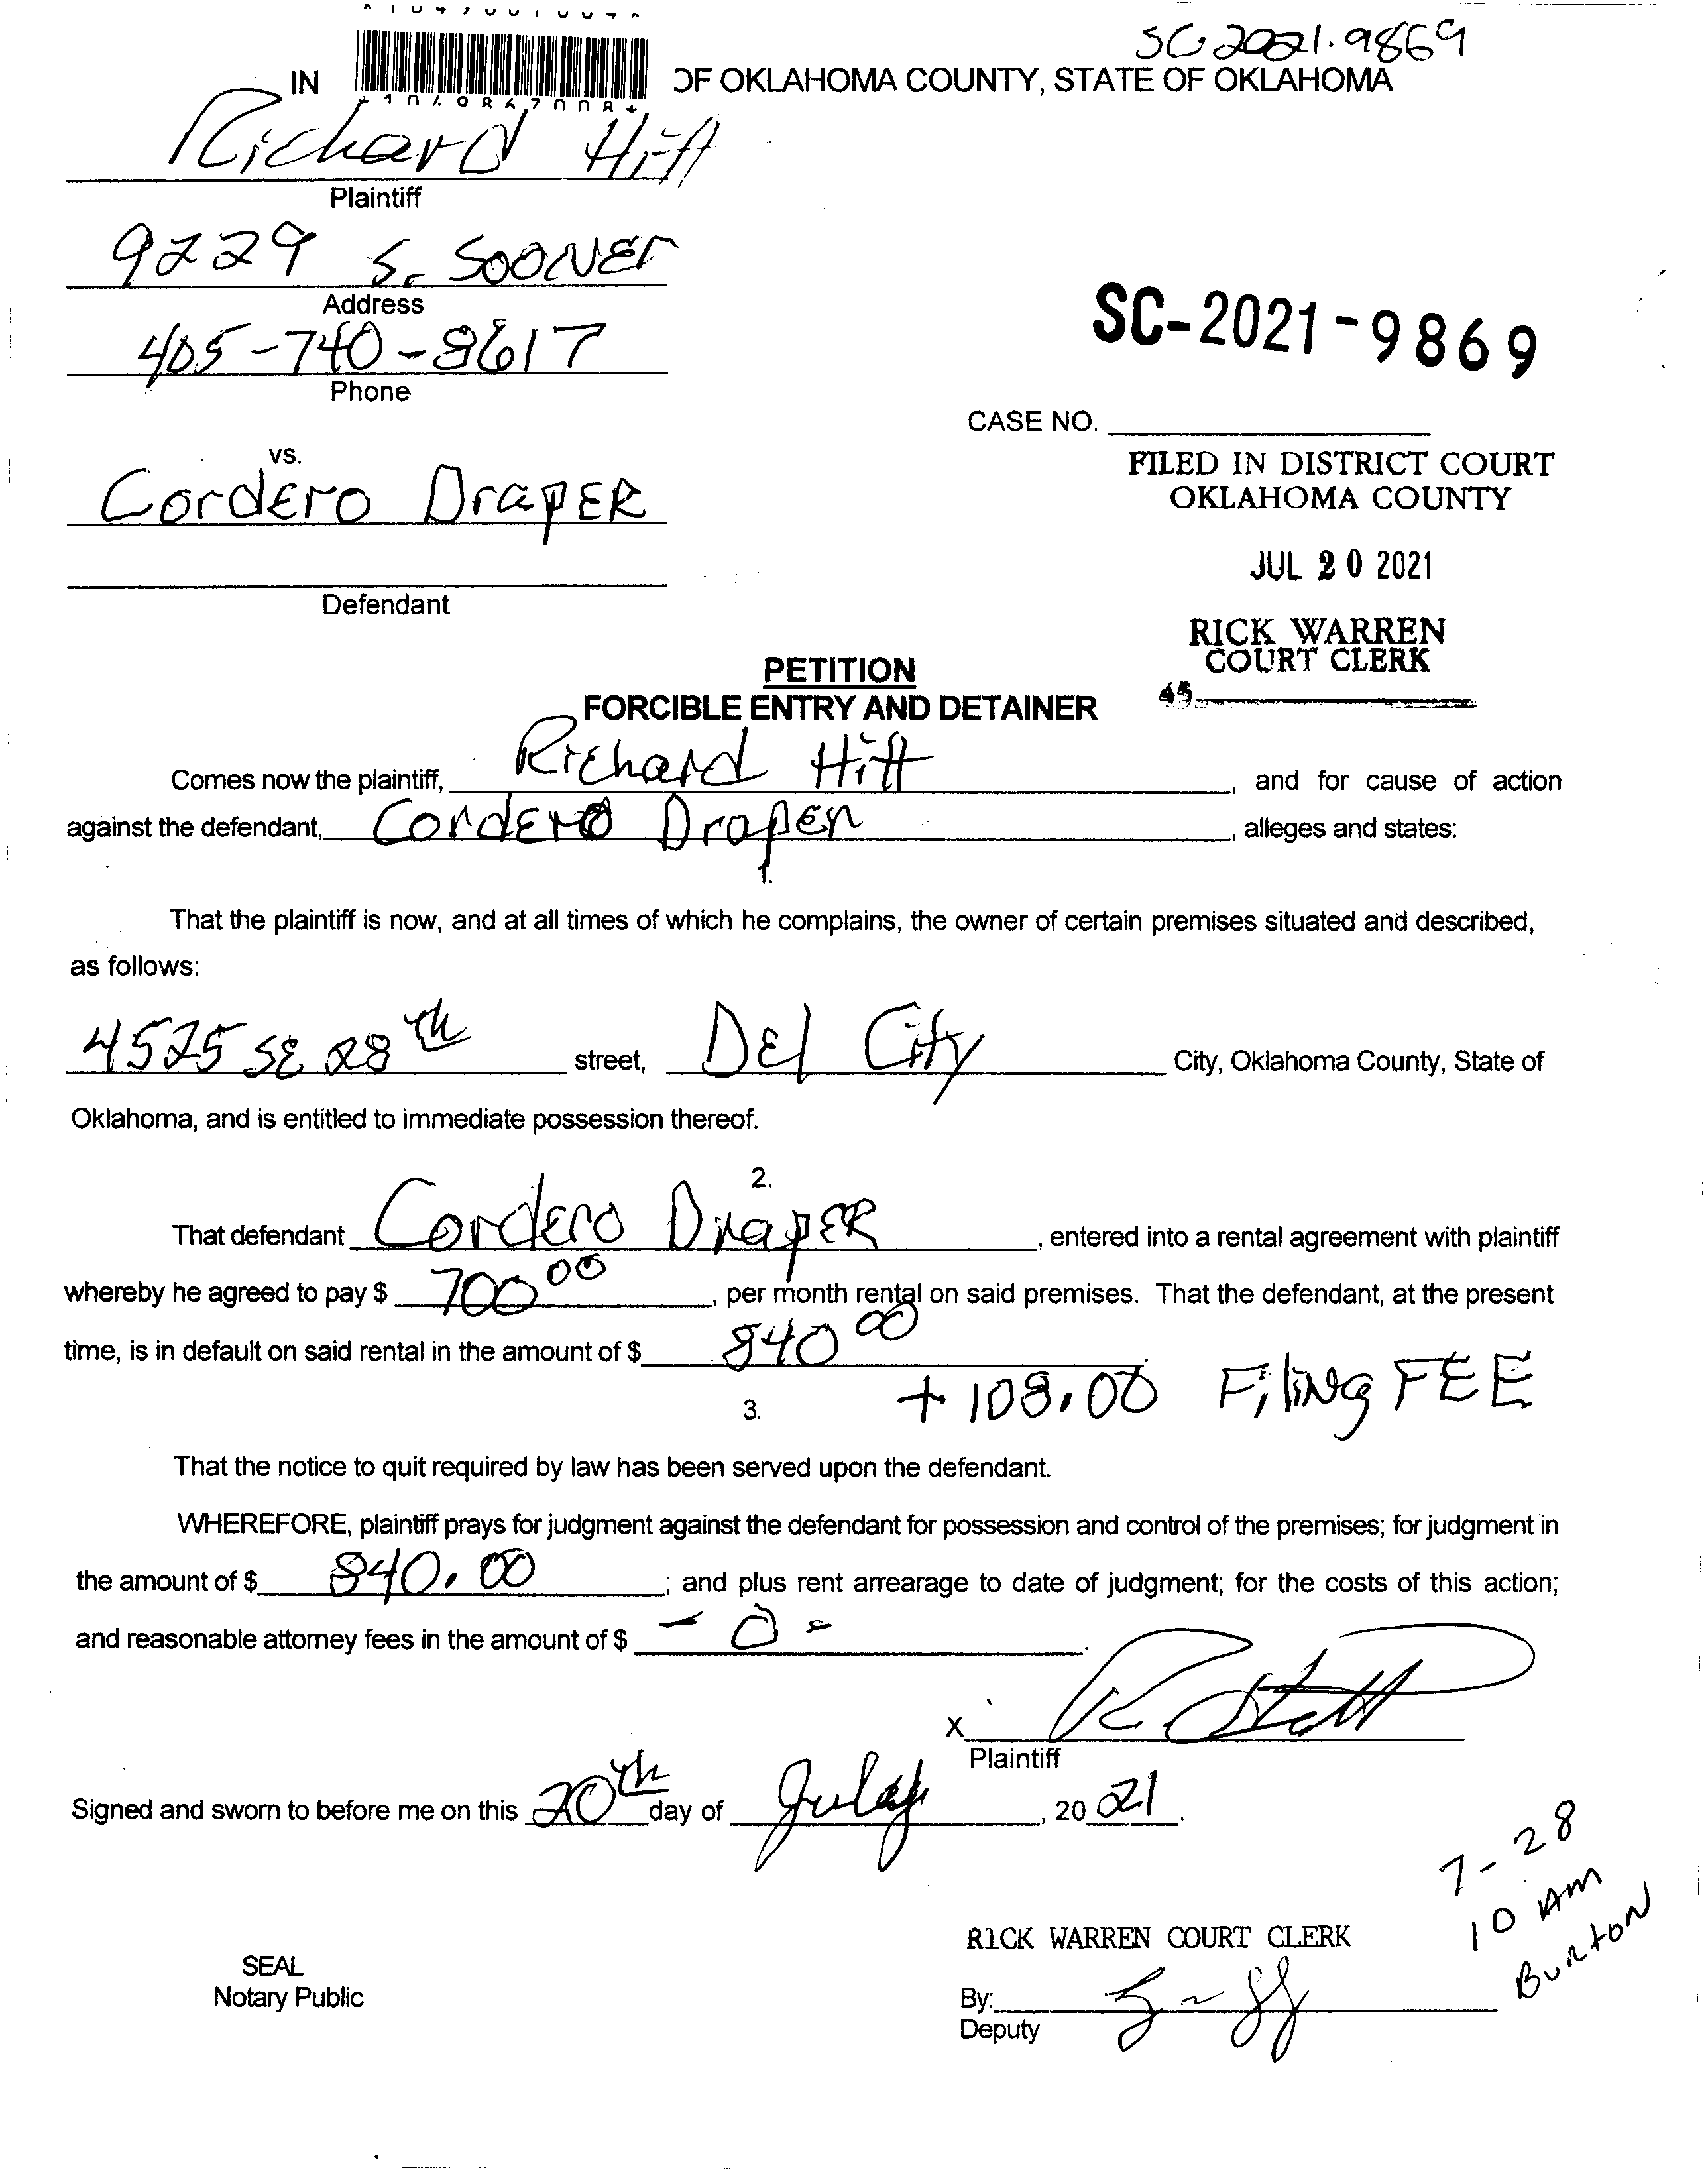 SC 2021.9869
IN OF OKLAHOMA COUNTY, STATE OF OKLAHOMA
Richard Hitt
Plaintiff
9229 S. SOONEr
Address
405-740-8617
Phone
SC-2021-9869
CASE NO.
vs.
CordEro DrapER
FILED IN DISTRICT COURT
OKLAHOMA COUNTY
JUL 20 2021
Defendant
RICK WARREN
COURT CLERK
PETITION
45
FORCIBLE ENTRY AND DETAINER
Comes now the plaintiff, Richard Hitt, and for cause of action
against the defendant, CordEro DrapEr, alleges and states:
1.
That the plaintiff is now, and at all times of which he complains, the owner of certain premises situated and described,
as follows:
4525 SE 28th street, DEl City City, Oklahoma County, State of
Oklahoma, and is entitled to immediate possession thereof.
2.
That defendant CordEro DrapER, entered into a rental agreement with plaintiff
whereby he agreed to pay $ 700 00, per month rental on said premises. That the defendant, at the present
time, is in default on said rental in the amount of $ 840 00
+ 108.00 Filing FEE
3.
That the notice to quit required by law has been served upon the defendant.
WHEREFORE, plaintiff prays for judgment against the defendant for possession and control of the premises; for judgment in
the amount of $ 840.00; and plus rent arrearage to date of judgment; for the costs of this action;
and reasonable attorney fees in the amount of $ - 0 -.
X
Plaintiff
Signed and sworn to before me on this 20th day of July, 2021.
7-28
10 AM
Burton
RICK WARREN COURT CLERK
SEAL
Notary Public
By:
Deputy